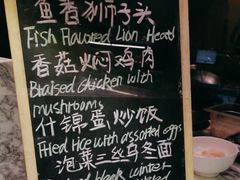 鱼香狮子头
Fish Flavored Lion Heads
香菇焖鸡肉
Braised chicken with
mushrooms
什锦蛋炒饭
Fried rice with assorted eggs
泡菜三丝乌冬面
black winter